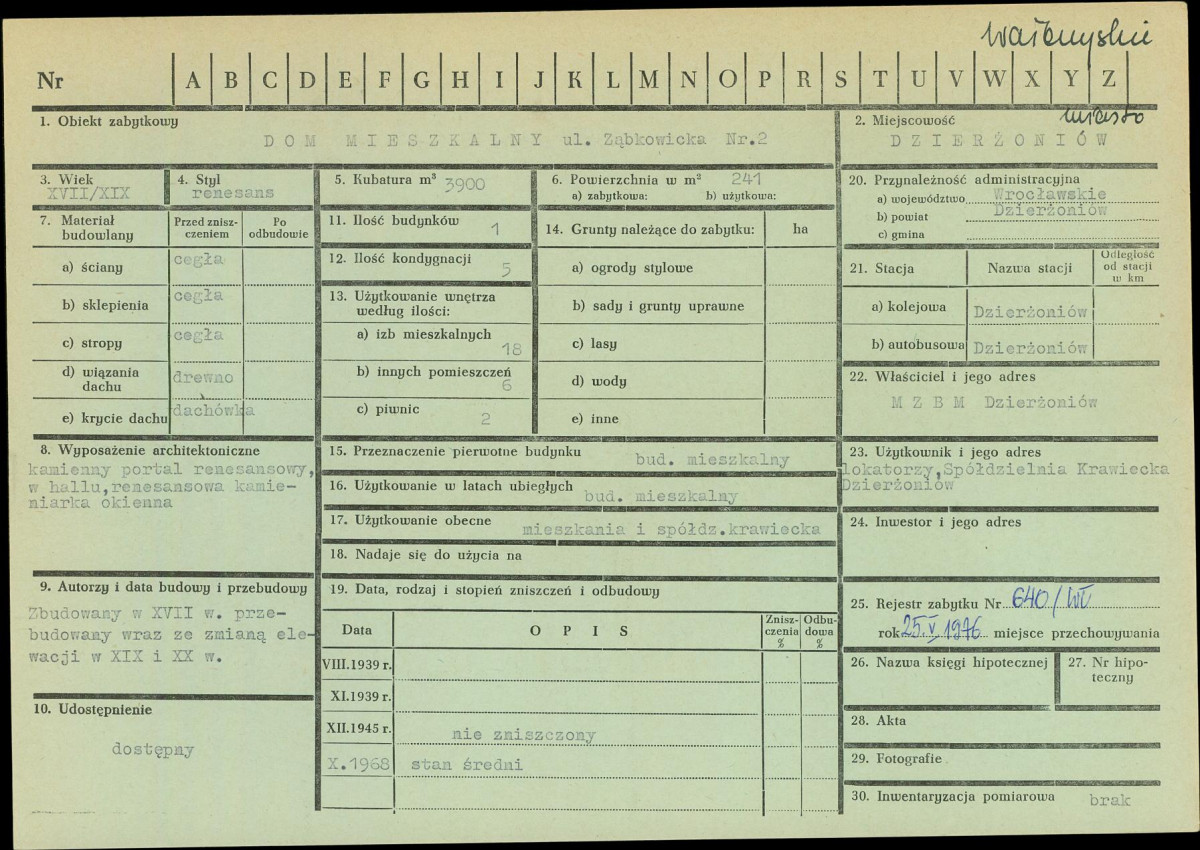 wałbrzyskie
Nr A B C D E F G H I J K L M N O P R S T U V W X Y Z
1. Obiekt zabytkowy
DOM MIESZKALNY ul. Ząbkowicka Nr.2
2. Miejscowość miasto
DZIERŻONIÓW
3. Wiek
XVII/XIX
4. Styl
renesans
5. Kubatura m³ 3900
6. Powierzchnia w m² 241
a) zabytkowa: b) użytkowa:
7. Materiał budowlany
Przed zniszczeniem
Po odbudowie
a) ściany cegła
b) sklepienia cegła
c) stropy cegła
d) wiązania dachu drewno
e) krycie dachu dachówka
11. Ilość budynków 1
12. Ilość kondygnacji 5
13. Użytkowanie wnętrza
według ilości:
a) izb mieszkalnych 18
b) innych pomieszczeń 6
c) piwnic 2
14. Grunty należące do zabytku: ha
a) ogrody stylowe
b) sady i grunty uprawne
c) lasy
d) wody
e) inne
20. Przynależność administracyjna
a) województwo Wrocławskie
b) powiat Dzierżoniów
c) gmina
21. Stacja
Nazwa stacji
Odległość od stacji w km
a) kolejowa Dzierżoniów
b) autobusowa Dzierżoniów
22. Właściciel i jego adres
MZBM Dzierżoniów
8. Wyposażenie architektoniczne
kamienny portal renesansowy,
w hallu,renesansowa kamie-
niarka okienna
15. Przeznaczenie pierwotne budynku
bud. mieszkalny
16. Użytkowanie w latach ubiegłych
bud. mieszkalny
17. Użytkowanie obecne
mieszkania i spółdz.krawiecka
18. Nadaje się do użycia na
23. Użytkownik i jego adres
lokatorzy,Spółdzielnia Krawiecka
Dzierżoniów
24. Inwestor i jego adres
9. Autorzy i data budowy i przebudowy
Zbudowany w XVII w. prze-
budowany wraz ze zmianą ele-
wacji w XIX i XX w.
10. Udostępnienie
dostępny
19. Data, rodzaj i stopień zniszczeń i odbudowy
Data
OPIS
Znisz-
czenia
%
Odbu-
dowa
%
VIII.1939 r.
XI.1939 r.
XII.1945 r. nie zniszczony
X.1968 stan średni
25. Rejestr zabytku Nr 640/WŁ
rok 25.V.1976 miejsce przechowywania
26. Nazwa księgi hipotecznej
27. Nr hipo-
teczny
28. Akta
29. Fotografie
30. Inwentaryzacja pomiarowa brak